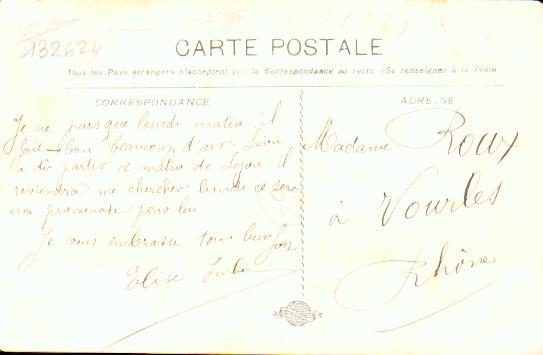 D132624
CARTE POSTALE
Tous les Pays étrangers n'acceptent pas la Correspondance au recto (Se renseigner à la Poste
CORRESPONDANCE
Je ne pars que lundi matin il
fait bon beaucoup d'air. Léon
a dû partir ce matin de Lyon il
reviendra me chercher lundi ce sera
une promenade pour lui
Je vous embrasse tous bien fort
Elise
ADRESSE
Madame Roux
à Vourles
Rhône